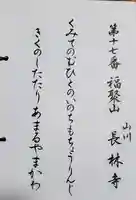 第十七番 福聚山 長林寺
山川
くみてのむひとのいのちもちょうりんじ
きくのしたたりあまるやまかわ